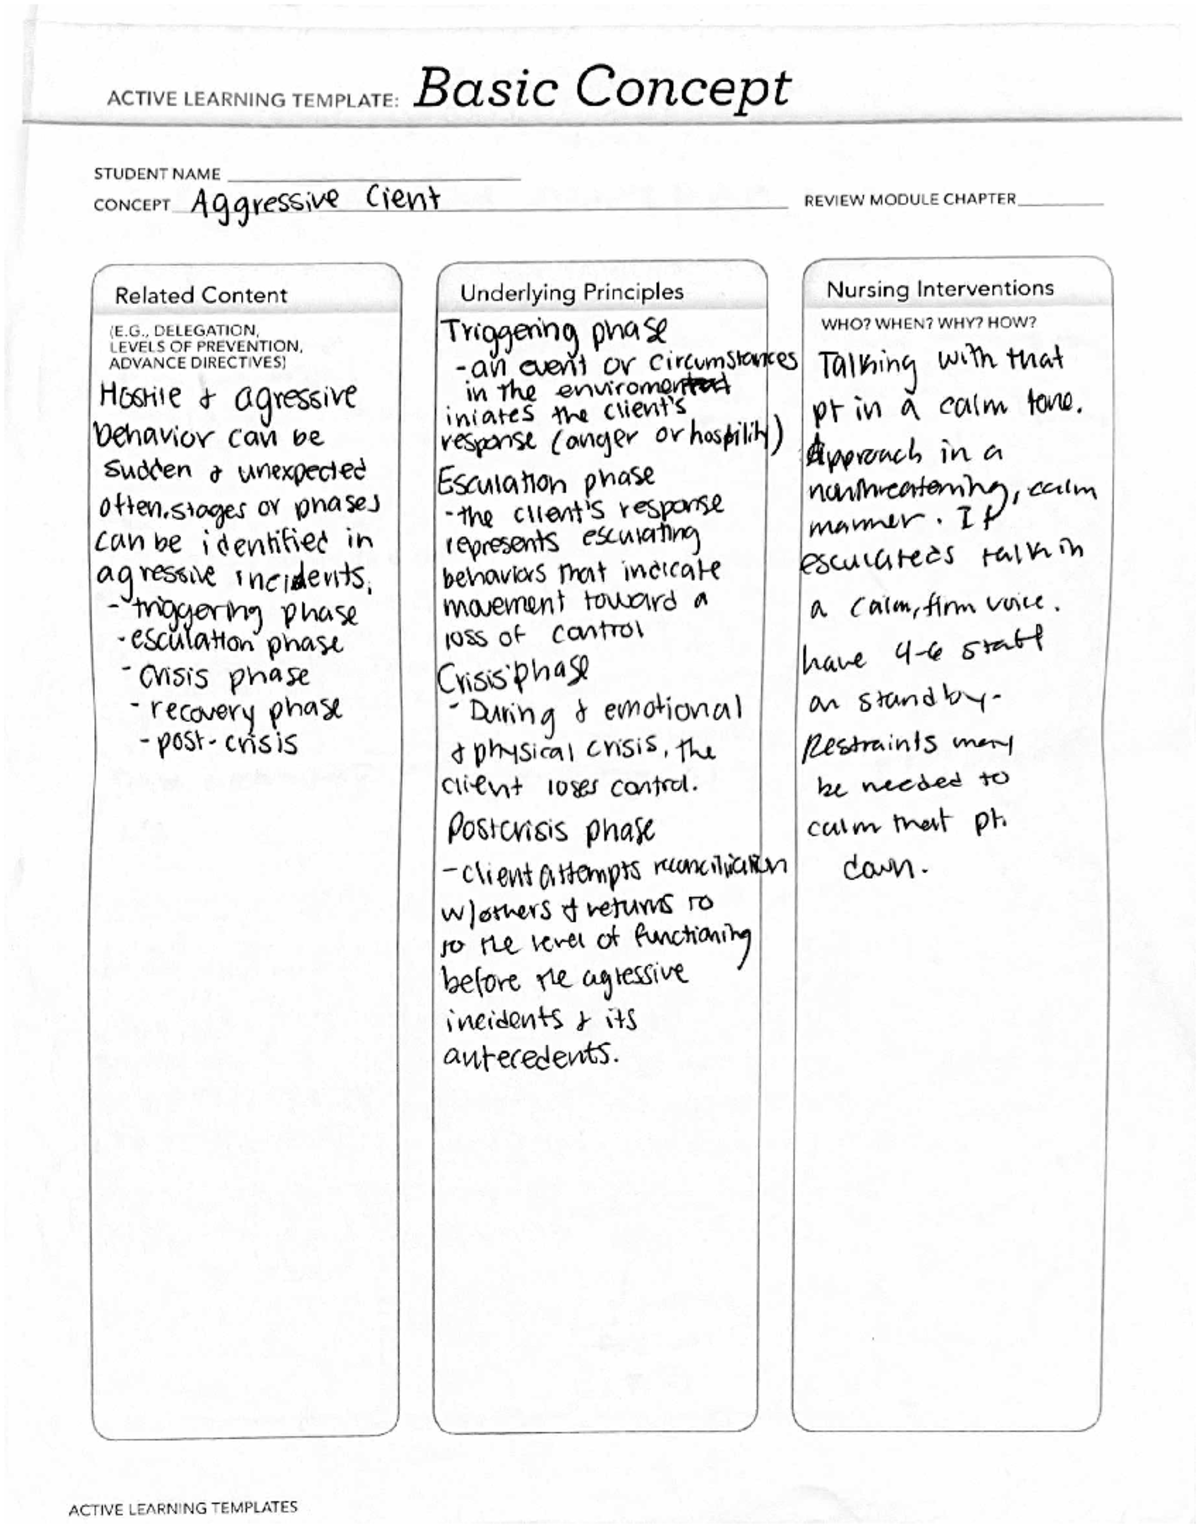 ACTIVE LEARNING TEMPLATE: Basic Concept
STUDENT NAME
CONCEPT Aggressive Cient
REVIEW MODULE CHAPTER
Related Content
(E.G., DELEGATION,
LEVELS OF PREVENTION,
ADVANCE DIRECTIVES)
Hostile & agressive
behavior can be
sudden & unexpected
often. stages or phases
can be identified in
agressive incidents.
- triggering phase
- esculation phase
- crisis phase
- recovery phase
- post-crisis
Underlying Principles
Triggering phase
- an event or circumstances
in the enviroment
iniates the client's
response (anger or hospility)
Esculation phase
- the client's response
represents esculating
behaviors that indicate
movement toward a
loss of control
Crisis phase
- During & emotional
& physical crisis, the
client loses control.
Postcrisis phase
- client attempts reconciliation
w/others & returns to
to the level of functioning
before the agressive
incidents & its
antecedents.
Nursing Interventions
WHO? WHEN? WHY? HOW?
Talking with that
pt in a calm tone.
Approach in a
nonthreatening, calm
manner. If
esculateds talk in
a calm, firm voice.
have 4-6 staff
on standby-
Restraints may
be needed to
calm that pt.
down.
ACTIVE LEARNING TEMPLATES